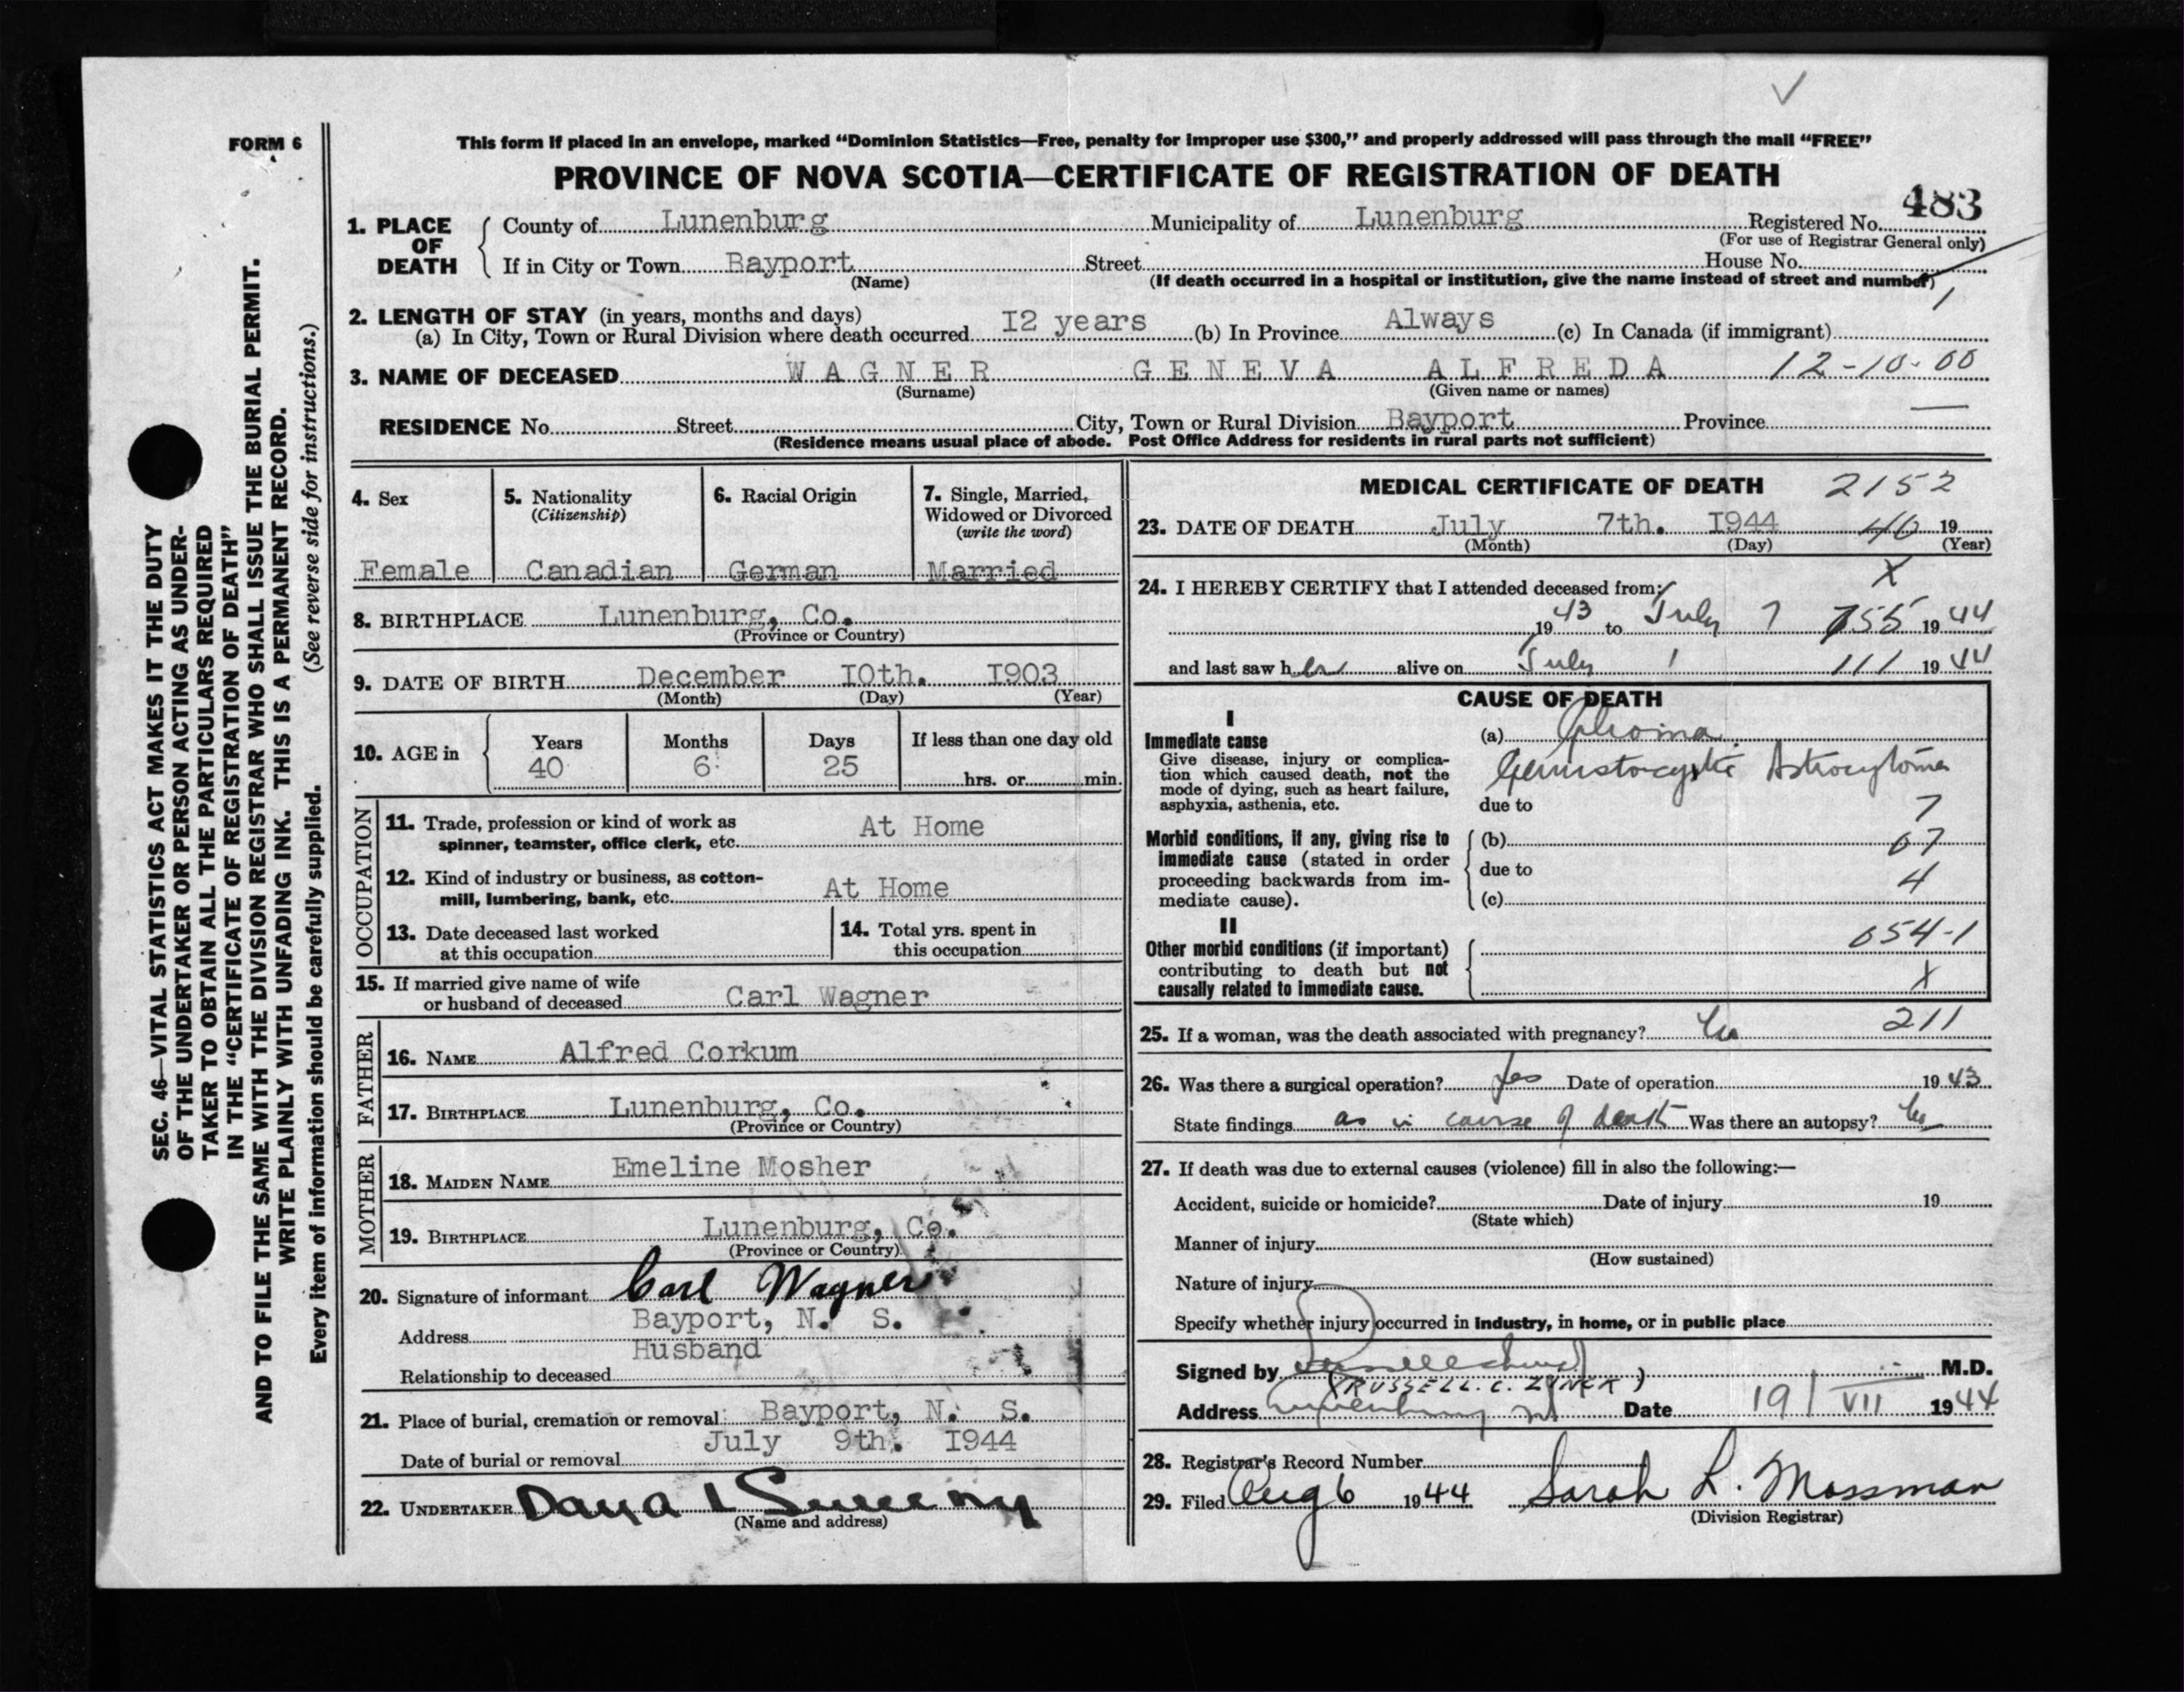 FORM 6
This form if placed in an envelope, marked “Dominion Statistics—Free, penalty for improper use $300,” and properly addressed will pass through the mail “FREE”
PROVINCE OF NOVA SCOTIA—CERTIFICATE OF REGISTRATION OF DEATH
483
1. PLACE OF DEATH County of Lunenburg Municipality of Lunenburg Registered No.
(For use of Registrar General only)
If in City or Town Bayport Street House No.
(Name) (If death occurred in a hospital or institution, give the name instead of street and number)
2. LENGTH OF STAY (in years, months and days)
(a) In City, Town or Rural Division where death occurred I2 years (b) In Province Always (c) In Canada (if immigrant)
3. NAME OF DECEASED WAGNER GENEVA ALFREDA 12-10-00
(Surname) (Given name or names)
RESIDENCE No. Street City, Town or Rural Division Bayport Province
(Residence means usual place of abode. Post Office Address for residents in rural parts not sufficient)
SEC. 46—VITAL STATISTICS ACT MAKES IT THE DUTY
OF THE UNDERTAKER OR PERSON ACTING AS UNDER-
TAKER TO OBTAIN ALL THE PARTICULARS REQUIRED
IN THE “CERTIFICATE OF REGISTRATION OF DEATH”
AND TO FILE THE SAME WITH THE DIVISION REGISTRAR WHO SHALL ISSUE THE BURIAL PERMIT.
WRITE PLAINLY WITH UNFADING INK. THIS IS A PERMANENT RECORD.
Every item of information should be carefully supplied. (See reverse side for instructions.)
4. Sex
Female
5. Nationality
(Citizenship)
Canadian
6. Racial Origin
German
7. Single, Married,
Widowed or Divorced
(write the word)
Married
8. BIRTHPLACE Lunenburg, Co.
(Province or Country)
9. DATE OF BIRTH December I0th. I903
(Month) (Day) (Year)
10. AGE in Years Months Days If less than one day old
40 6 25
hrs. or min.
OCCUPATION
11. Trade, profession or kind of work as
spinner, teamster, office clerk, etc. At Home
12. Kind of industry or business, as cotton-
mill, lumbering, bank, etc. At Home
13. Date deceased last worked
at this occupation
14. Total yrs. spent in
this occupation
15. If married give name of wife
or husband of deceased Carl Wagner
FATHER
16. NAME Alfred Corkum
17. BIRTHPLACE Lunenburg, Co.
(Province or Country)
MOTHER
18. MAIDEN NAME Emeline Mosher
19. BIRTHPLACE Lunenburg, Co.
(Province or Country)
20. Signature of informant Carl Wagner
Address Bayport, N. S.
Relationship to deceased Husband
21. Place of burial, cremation or removal Bayport, N. S.
Date of burial or removal July 9th. I944
22. UNDERTAKER
(Name and address)
MEDICAL CERTIFICATE OF DEATH 2152
23. DATE OF DEATH July 7th. I944 46 19
(Month) (Day) (Year)
X
24. I HEREBY CERTIFY that I attended deceased from:
1943 to July 7 755 1944
and last saw her alive on July 1 111 1944
CAUSE OF DEATH
I
Immediate cause
Give disease, injury or complica-
tion which caused death, not the
mode of dying, such as heart failure,
asphyxia, asthenia, etc.
(a) Glioma
Gemistocystic Astrocytoma
due to 7
Morbid conditions, if any, giving rise to
immediate cause (stated in order
proceeding backwards from im-
mediate cause).
(b) 07
due to
4
(c)
II
Other morbid conditions (if important)
contributing to death but not
causally related to immediate cause.
054-1
X
25. If a woman, was the death associated with pregnancy? No 211
26. Was there a surgical operation? Yes Date of operation 1943
State findings as in cause of death Was there an autopsy? No
27. If death was due to external causes (violence) fill in also the following:—
Accident, suicide or homicide? Date of injury 19
(State which)
Manner of injury
(How sustained)
Nature of injury
Specify whether injury occurred in industry, in home, or in public place
Signed by M.D.
(RUSSELL. C. ZINCK)
Address Lunenburg NS Date 19 VII 1944
28. Registrar's Record Number
29. Filed Aug 6 1944 Sarah L. Mossman
(Division Registrar)